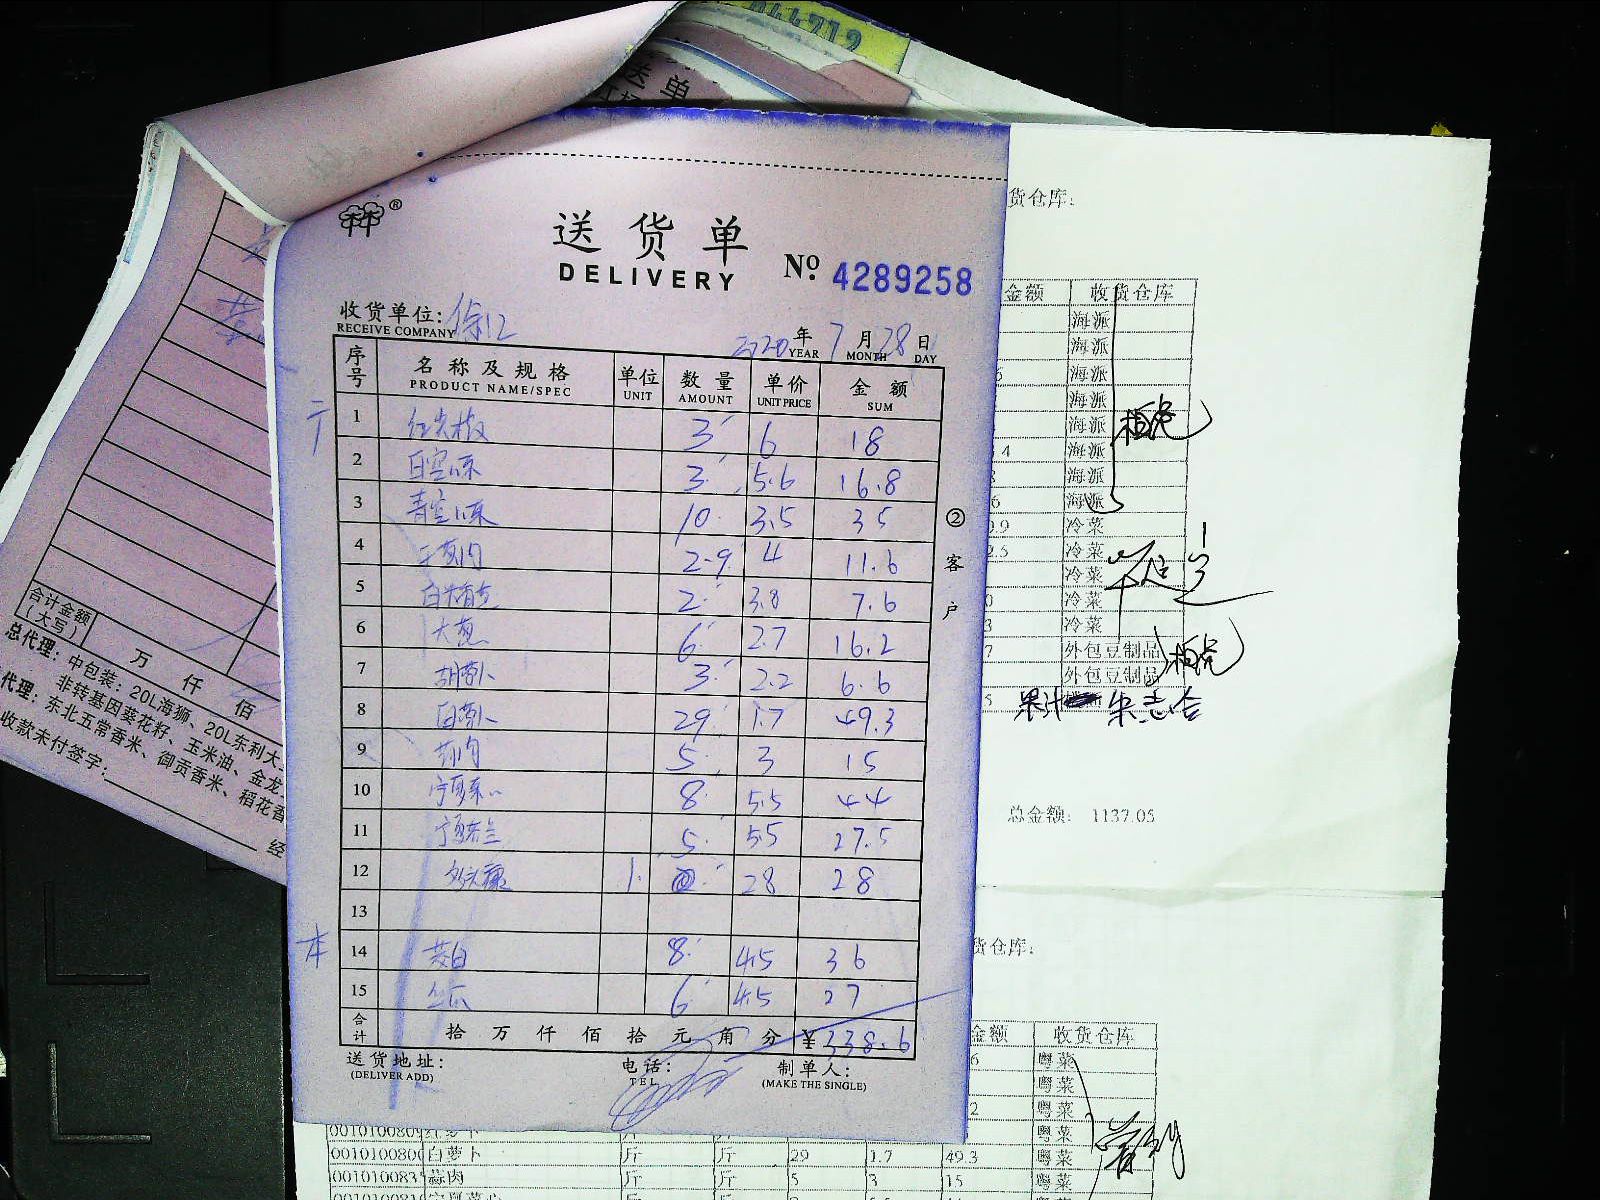 044919
送 单
®
送 货 单
DELIVERY
Nº. 4289258
收货单位:
RECEIVE COMPANY
2020 年 7 月 28 日
YEAR MONTH DAY
序号 名称及规格 单位 数量 单价 金额
PRODUCT NAME/SPEC UNIT AMOUNT UNIT PRICE SUM
二
1 红尖椒 3 6 18
2 白空心菜 3 5.6 16.8
3 青空心菜 10 3.5 35
4 干葱肉 2.9 4 11.6
5 2 3.8 7.6
6 大葱 6 2.7 16.2
7 胡萝卜 3 2.2 6.6
8 白萝卜 29 1.7 49.3
9 蒜肉 5 3 15
10 宁夏菜心 8 5.5 44
11 宁夏芥兰 5 5.5 27.5
12 1 28 28
13
本
14 茭白 8 4.5 36
15 丝瓜 6 4.5 27
合计 拾 万 仟 佰 拾 元 角 分 ¥338.6
送货地址: 电话: 制单人:
(DELIVER ADD) TEL (MAKE THE SINGLE)
② 客 户
合计金额
(大写) 万 仟 佰
总代理: 中包装: 20L海狮、20L东利大
非转基因葵花籽、玉米油、金龙
代理: 东北五常香米、御贡香米、稻花香
收款未付签字:
经
货仓库:
金额 收货仓库
海派
海派
6 海派
海派
海派
4 海派
海派
6 海派
9.9 冷菜
2.5 冷菜
冷菜
0 冷菜
3 冷菜
7 外包豆制品
外包豆制品
5
果汁 朱志合
总金额: 1137.05
货仓库:
金额 收货仓库
6 粤菜
粤菜
2 粤菜
粤菜
0010100809 红萝卜 斤 斤
0010100800 白萝卜 斤 斤 29 1.7 49.3 粤菜
0010100835 蒜肉 斤 斤 5 3 15 粤菜
宁夏菜心